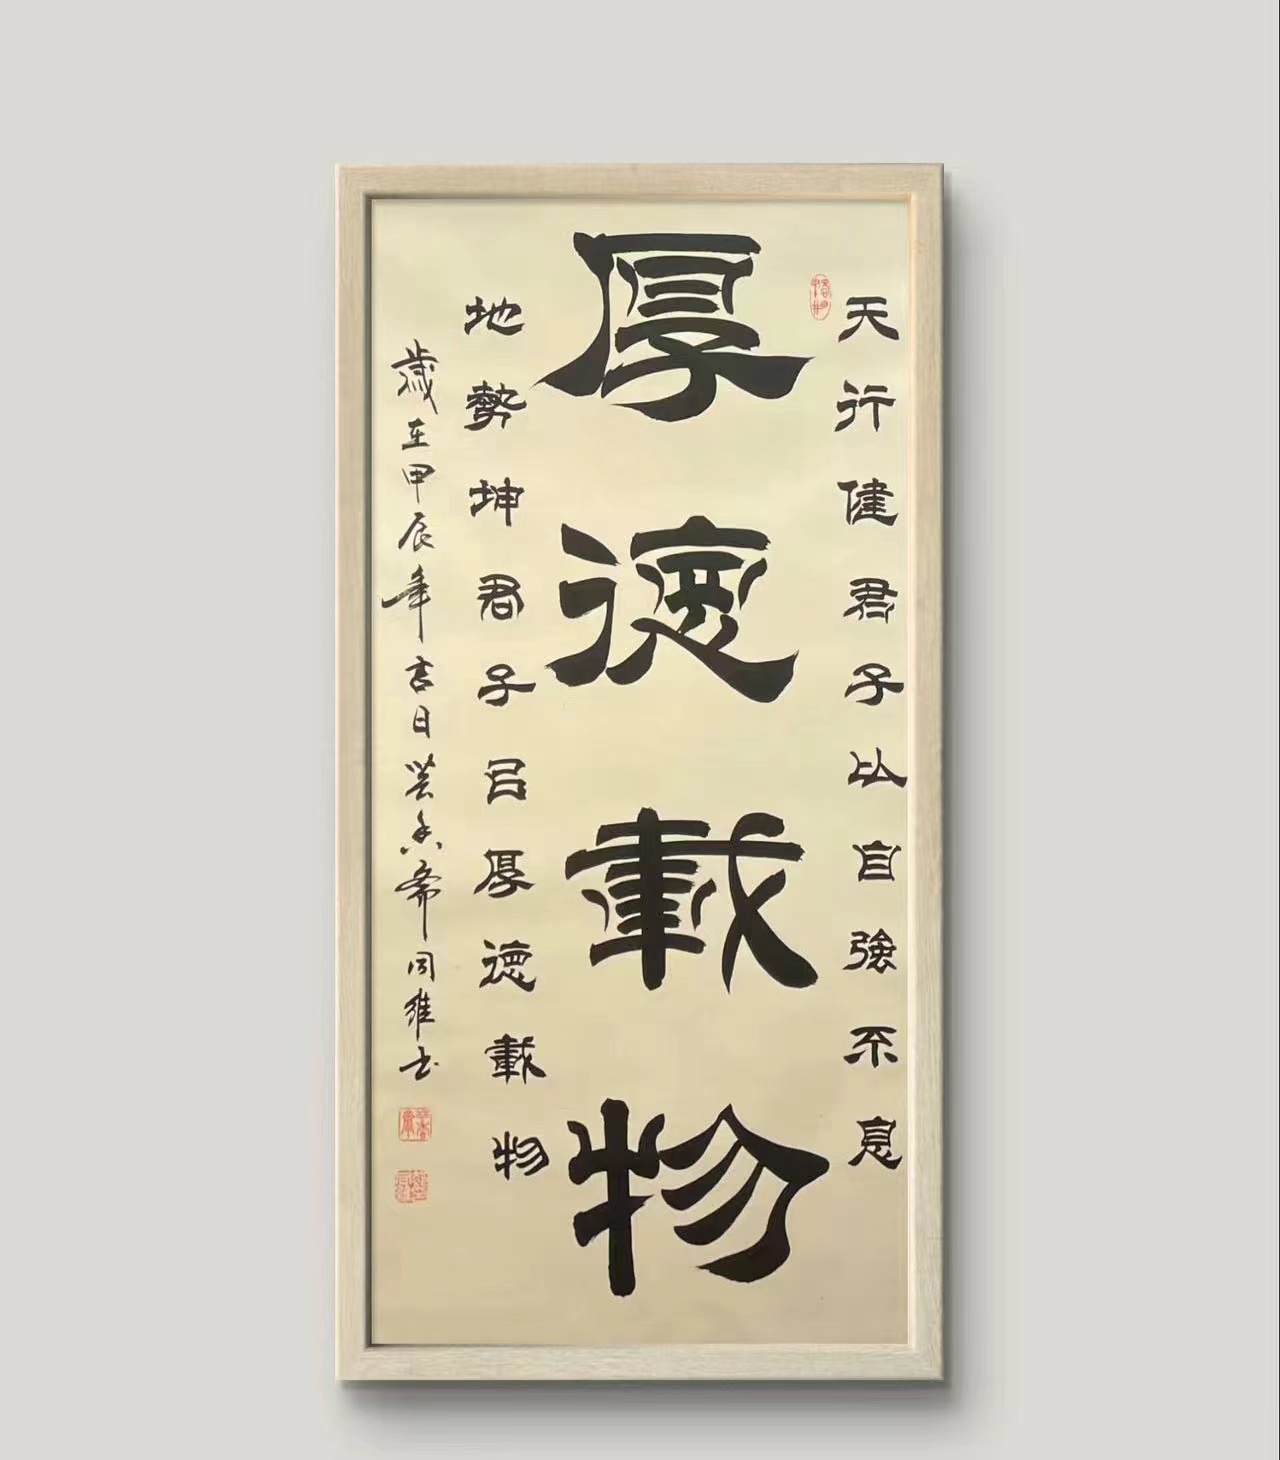 天行健君子以自強不息
厚德載物
地勢坤君子㠯厚德載物
歲在甲辰年吉日芸香齋同維书